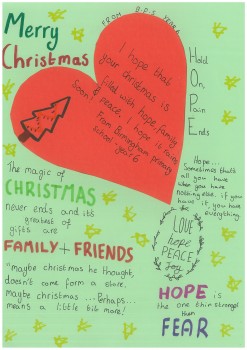 FROM B.P.S YEAR 6
Merry
Christmas
I hope that
your christmas is
filled with hope family
& peace, I hope it
Soon!
From Birmingham primary
school year 6
Hold
On,
Pain
Ends
The magic of
CHRISTMAS
never ends and its
greatest of
gifts are
FAMILY + FRIENDS
"maybe christmas he thought,
doesn't come form a store.
Maybe christmas ... Perhaps...
means a little bit more!
Hope...
Sometimes that's
all you have
when you have
nothing else, if you
have it, you have
everything
LOVE
hope
PEACE
Joy
HOPE is
the one thing stronger
than
FEAR